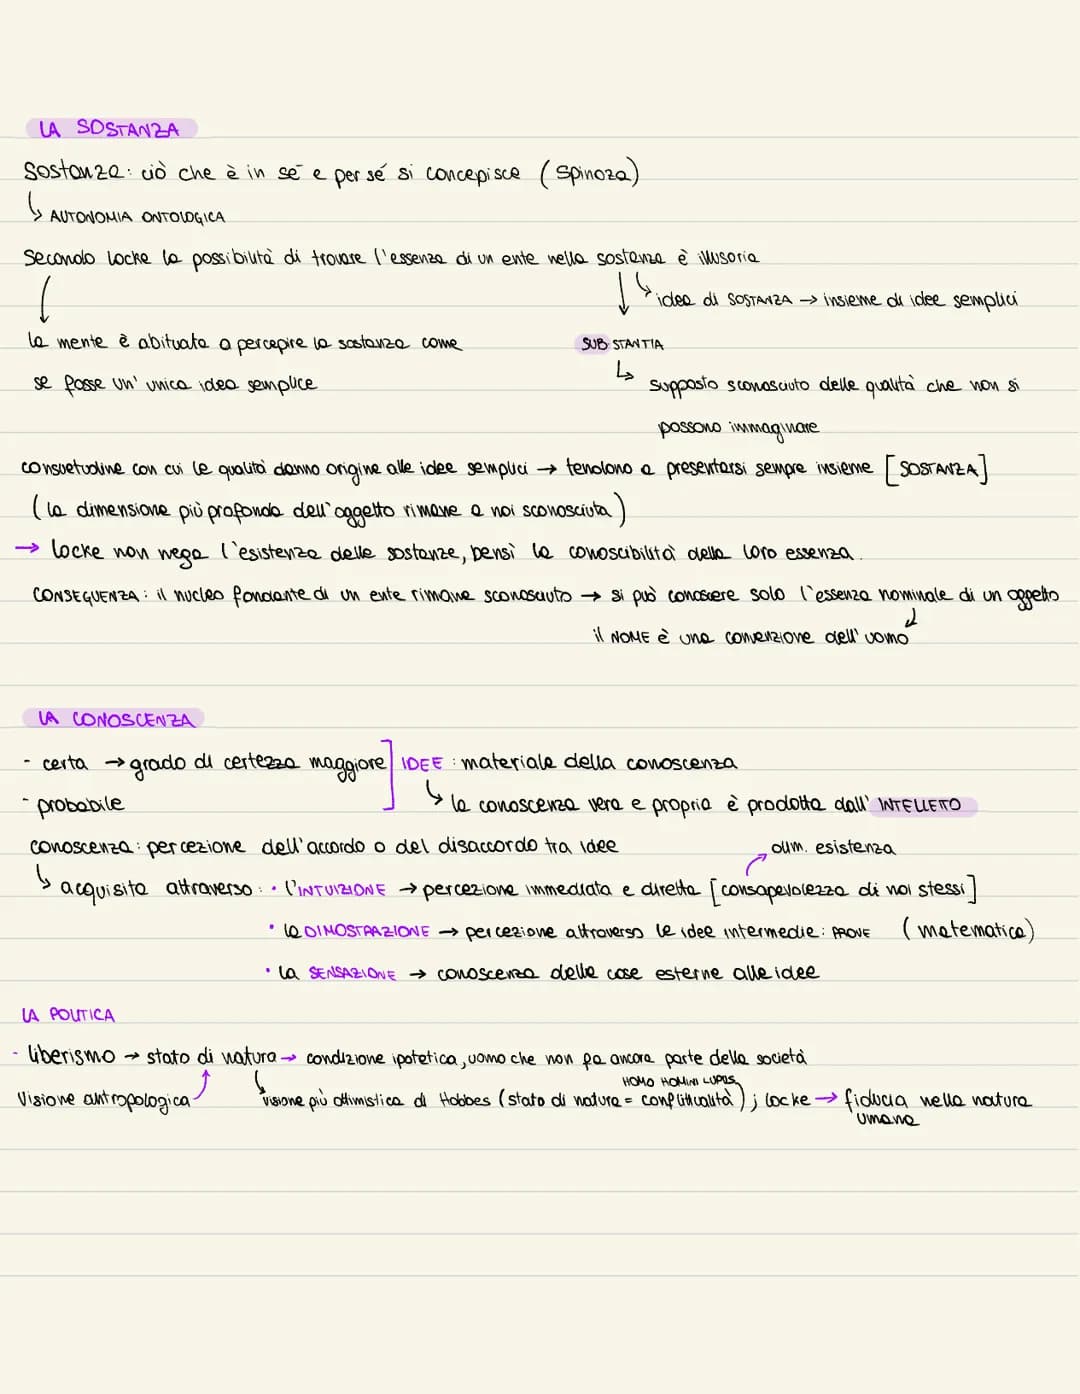 LA SOSTANZA
Sostanza: ciò che è in sé e per sé si concepisce (Spinoza)
↳ AUTONOMIA ONTOLOGICA
Secondo Locke la possibilità di trovare l'essenza di un ente nella sostanza è illusoria
↳ idea di SOSTANZA → insieme di idee semplici
la mente è abituata a percepire la sostanza come
se fosse un' unica idea semplice
SUB STANTIA
↳ supposto sconosciuto delle qualità che non si
possono immaginare
consuetudine con cui le qualità danno origine alle idee semplici → tendono a presentarsi sempre insieme [SOSTANZA]
(la dimensione più profonda dell'oggetto rimane a noi sconosciuta)
→ Locke non nega l'esistenza delle sostanze, bensì la conoscibilità della loro essenza.
CONSEGUENZA: il nucleo fondante di un ente rimane sconosciuto → si può conoscere solo l'essenza nominale di un oggetto
il NOME è una convenzione dell' uomo
LA CONOSCENZA
- certa → grado di certezza maggiore] IDEE: materiale della conoscenza
- probabile
↳ la conoscenza vera e propria è prodotta dall' INTELLETTO
conoscenza: percezione dell'accordo o del disaccordo tra idee
dim. esistenza
↳ acquisita attraverso: • l'INTUIZIONE → percezione immediata e diretta [consapevolezza di noi stessi]
• la DIMOSTRAZIONE → percezione attraverso le idee intermedie: PROVE (matematica)
• la SENSAZIONE → conoscenza delle cose esterne alle idee
LA POLITICA
- liberismo → stato di natura → condizione ipotetica, uomo che non fa ancora parte della società
HOMO HOMINI LUPUS
Visione antropologica visione più ottimistica di Hobbes (stato di natura = conflittualità); Locke → fiducia nella natura
umana